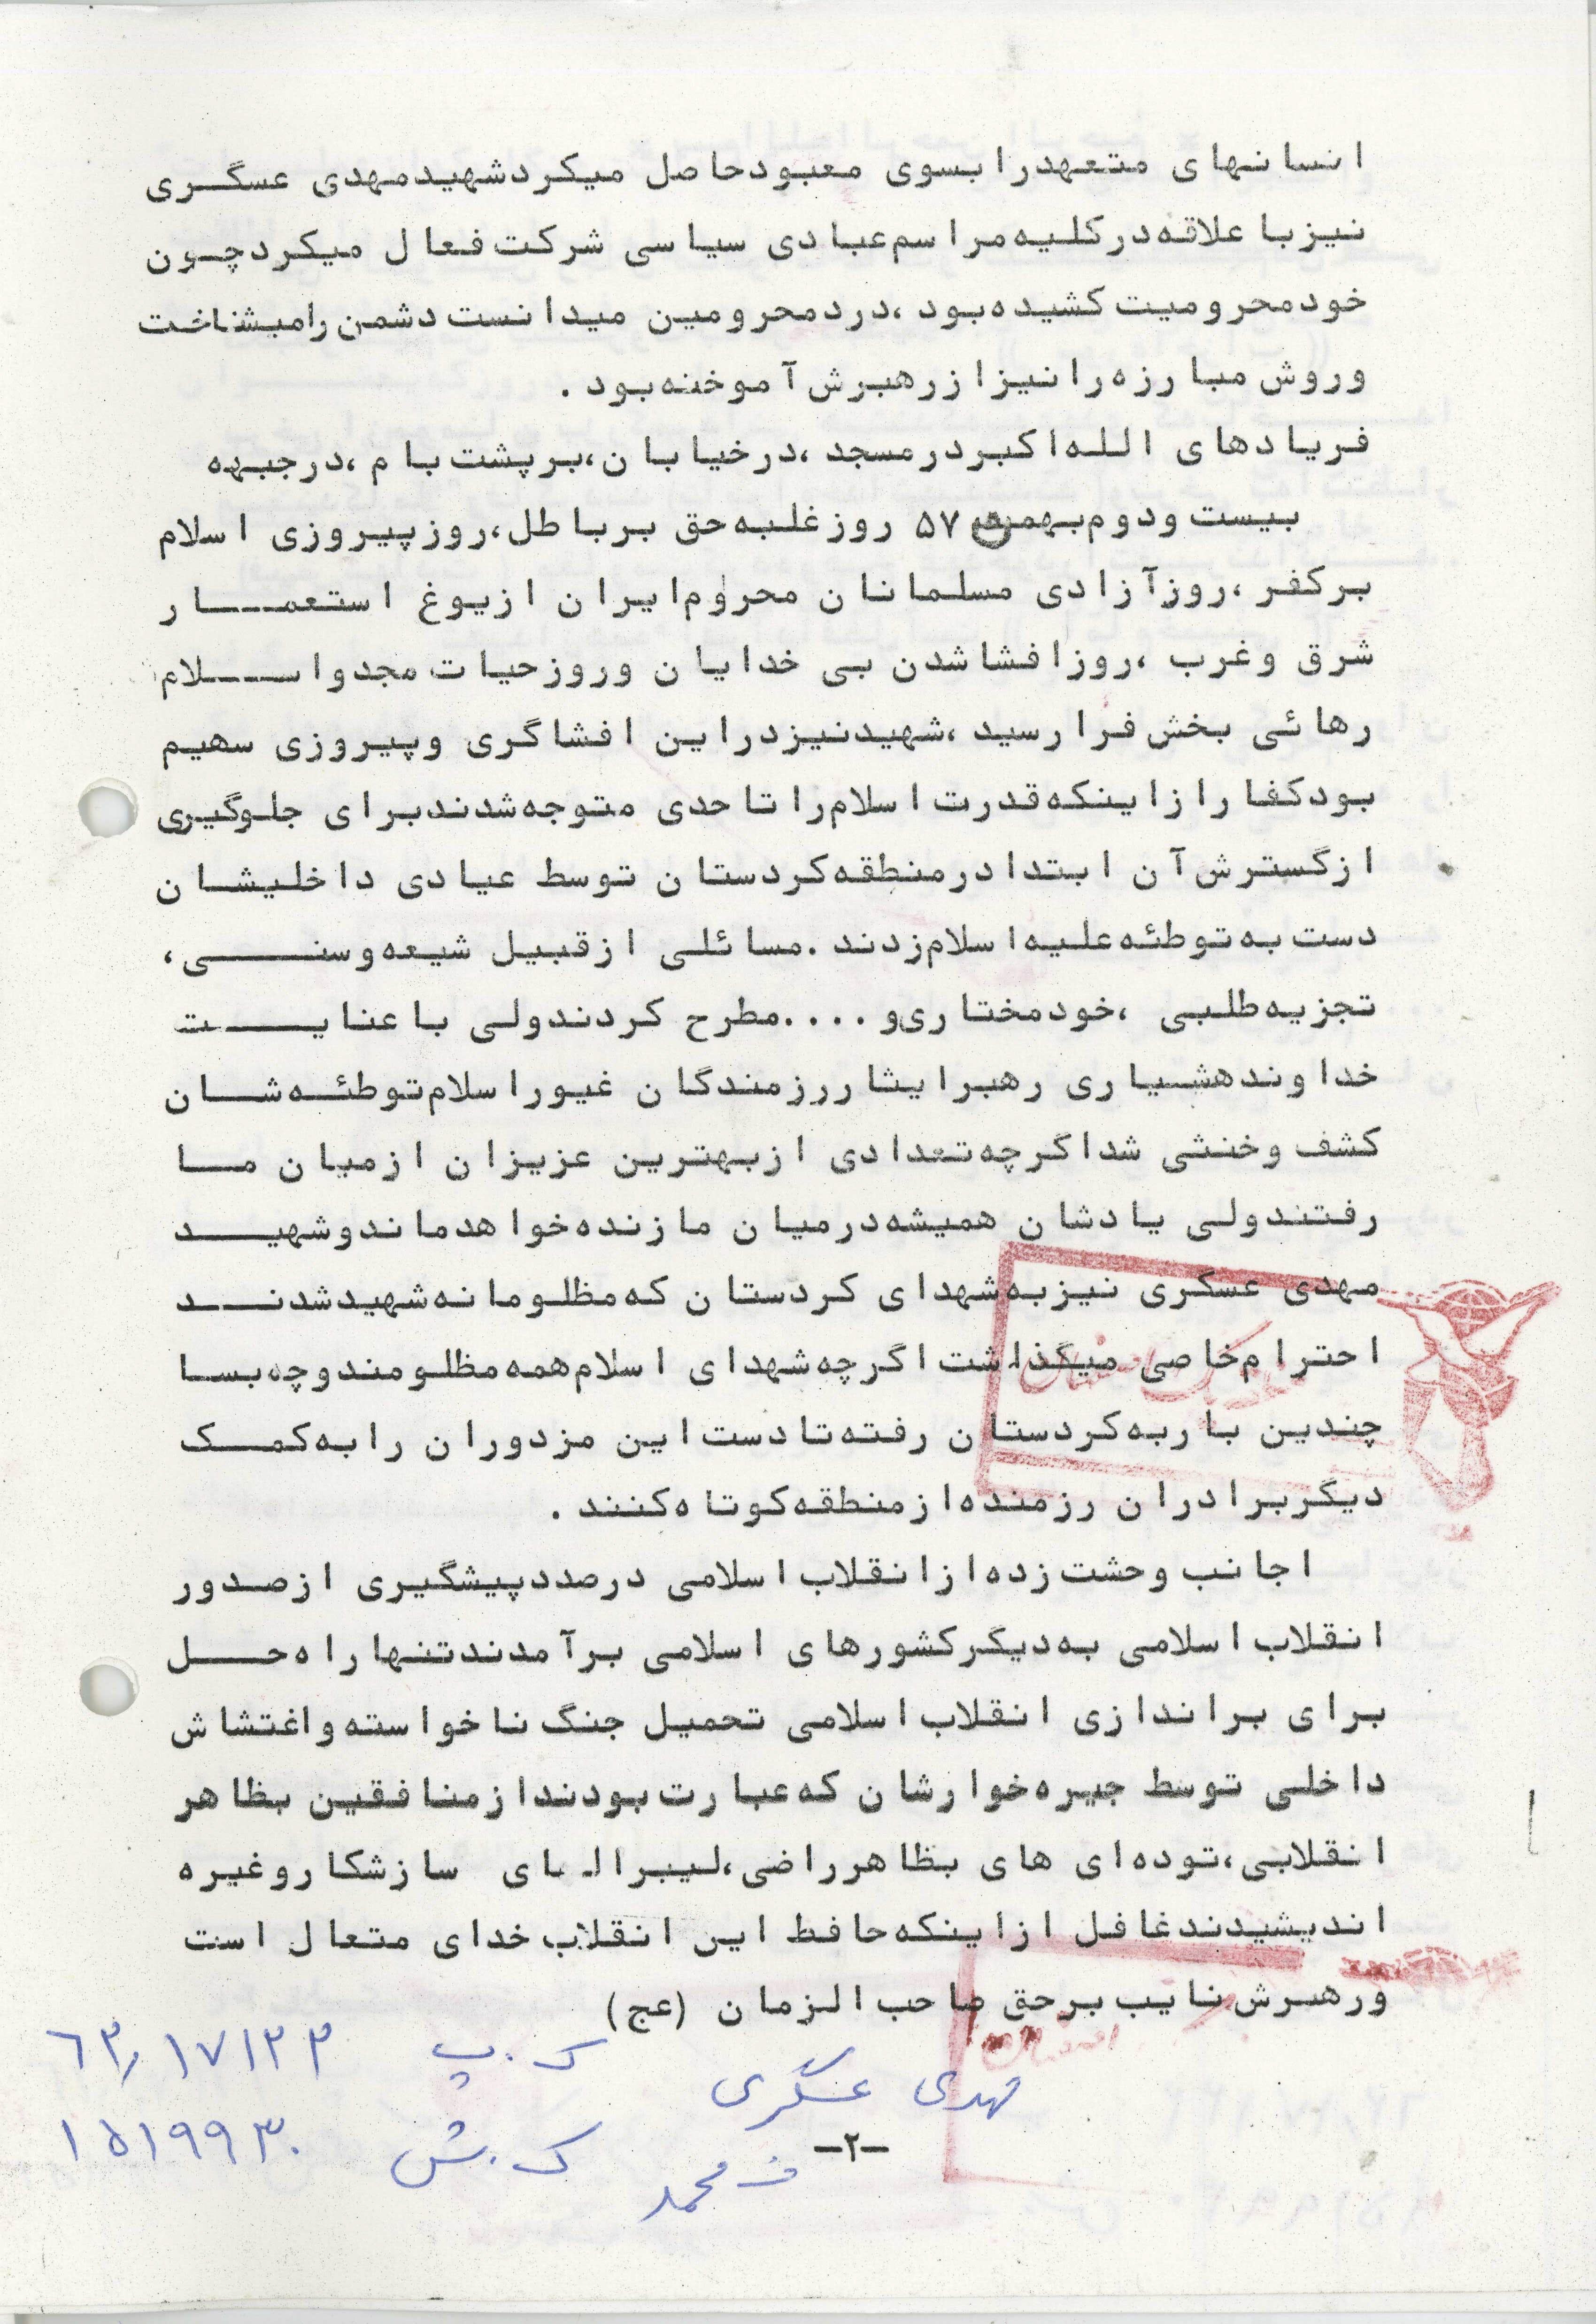 انسانهای متعهدرا بسوی معبودحاصل میکردشهیدمهدی عسگری
نیزبا علاقه درکلیه مراسم عبادی سیاسی شرکت فعال میکردچون
خودمحرومیت کشیده بود ،دردمحرومین میدانست دشمن رامیشناخت
وروش مبارزه رانیزازرهبرش آموخته بود .
فریادهای الله اکبردرمسجد ،درخیابان،برپشت بام ،درجبهه
بیست ودوم بهمن ۵۷ روزغلبه حق برباطل،روزپیروزی اسلام
برکفر ،روزآزادی مسلمانان محروم ایران ازیوغ استعمار
شرق وغرب ،روزافشاشدن بی خدایان وروزحیات مجدواسلام
رهائی بخش فرارسید ،شهیدنیزدراین افشاگری وپیروزی سهیم
بودکفارازاینکه قدرت اسلام را تاحدی متوجه شدندبرای جلوگیری
ازگسترش آن ابتدا درمنطقه کردستان توسط عیادی داخلیشان
دست به توطئه علیه اسلام زدند .مسائلی ازقبیل شیعه وسنی ،
تجزیه طلبی ،خودمختاری و ....مطرح کردندولی باعنایت
خداوندهشیاری رهبرایثاررزمندگان غیوراسلام توطئه شان
کشف وخنثی شداگرچه تعدادی ازبهترین عزیزان ازمیان ما
رفتندولی یادشان همیشه درمیان مازنده خواهدماندوشهید
مهدی عسگری نیزبه شهدای کردستان که مظلومانه شهیدشدند
احترام خاصی میگذاشت اگرچه شهدای اسلام همه مظلومندوچه بسا
چندین باربه کردستان رفته تادست این مزدوران رابه کمک
دیگربرادران رزمنده ازمنطقه کوتاه کنند .
اجانب وحشت زده ازانقلاب اسلامی درصددپیشگیری ازصدور
انقلاب اسلامی به دیگرکشورهای اسلامی برآمدندتنهاراه حل
برای براندازی انقلاب اسلامی تحمیل جنگ ناخواسته واغتشاش
داخلی توسط جیره خوارشان که عبارت بودندازمنافقین بظاهر
انقلابی،توده ای های بظاهرراضی،لیبرالهای سازشکاروغیره
اندیشیدندغافل ازاینکه حافظ این انقلاب خدای متعال است
ورهبرش نایب برحق صاحب الزمان (عج)
مهدی عسگری ک.پ ۶۳٫۱۷۱۳۳
ف محمد ک.ش ۱۵۱۹۹۳۰
-۲-